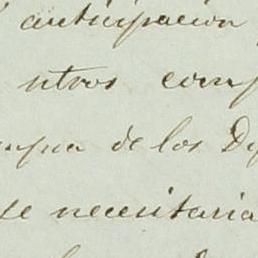 anticipacion
ntros comp
de los Di
se necesitaria